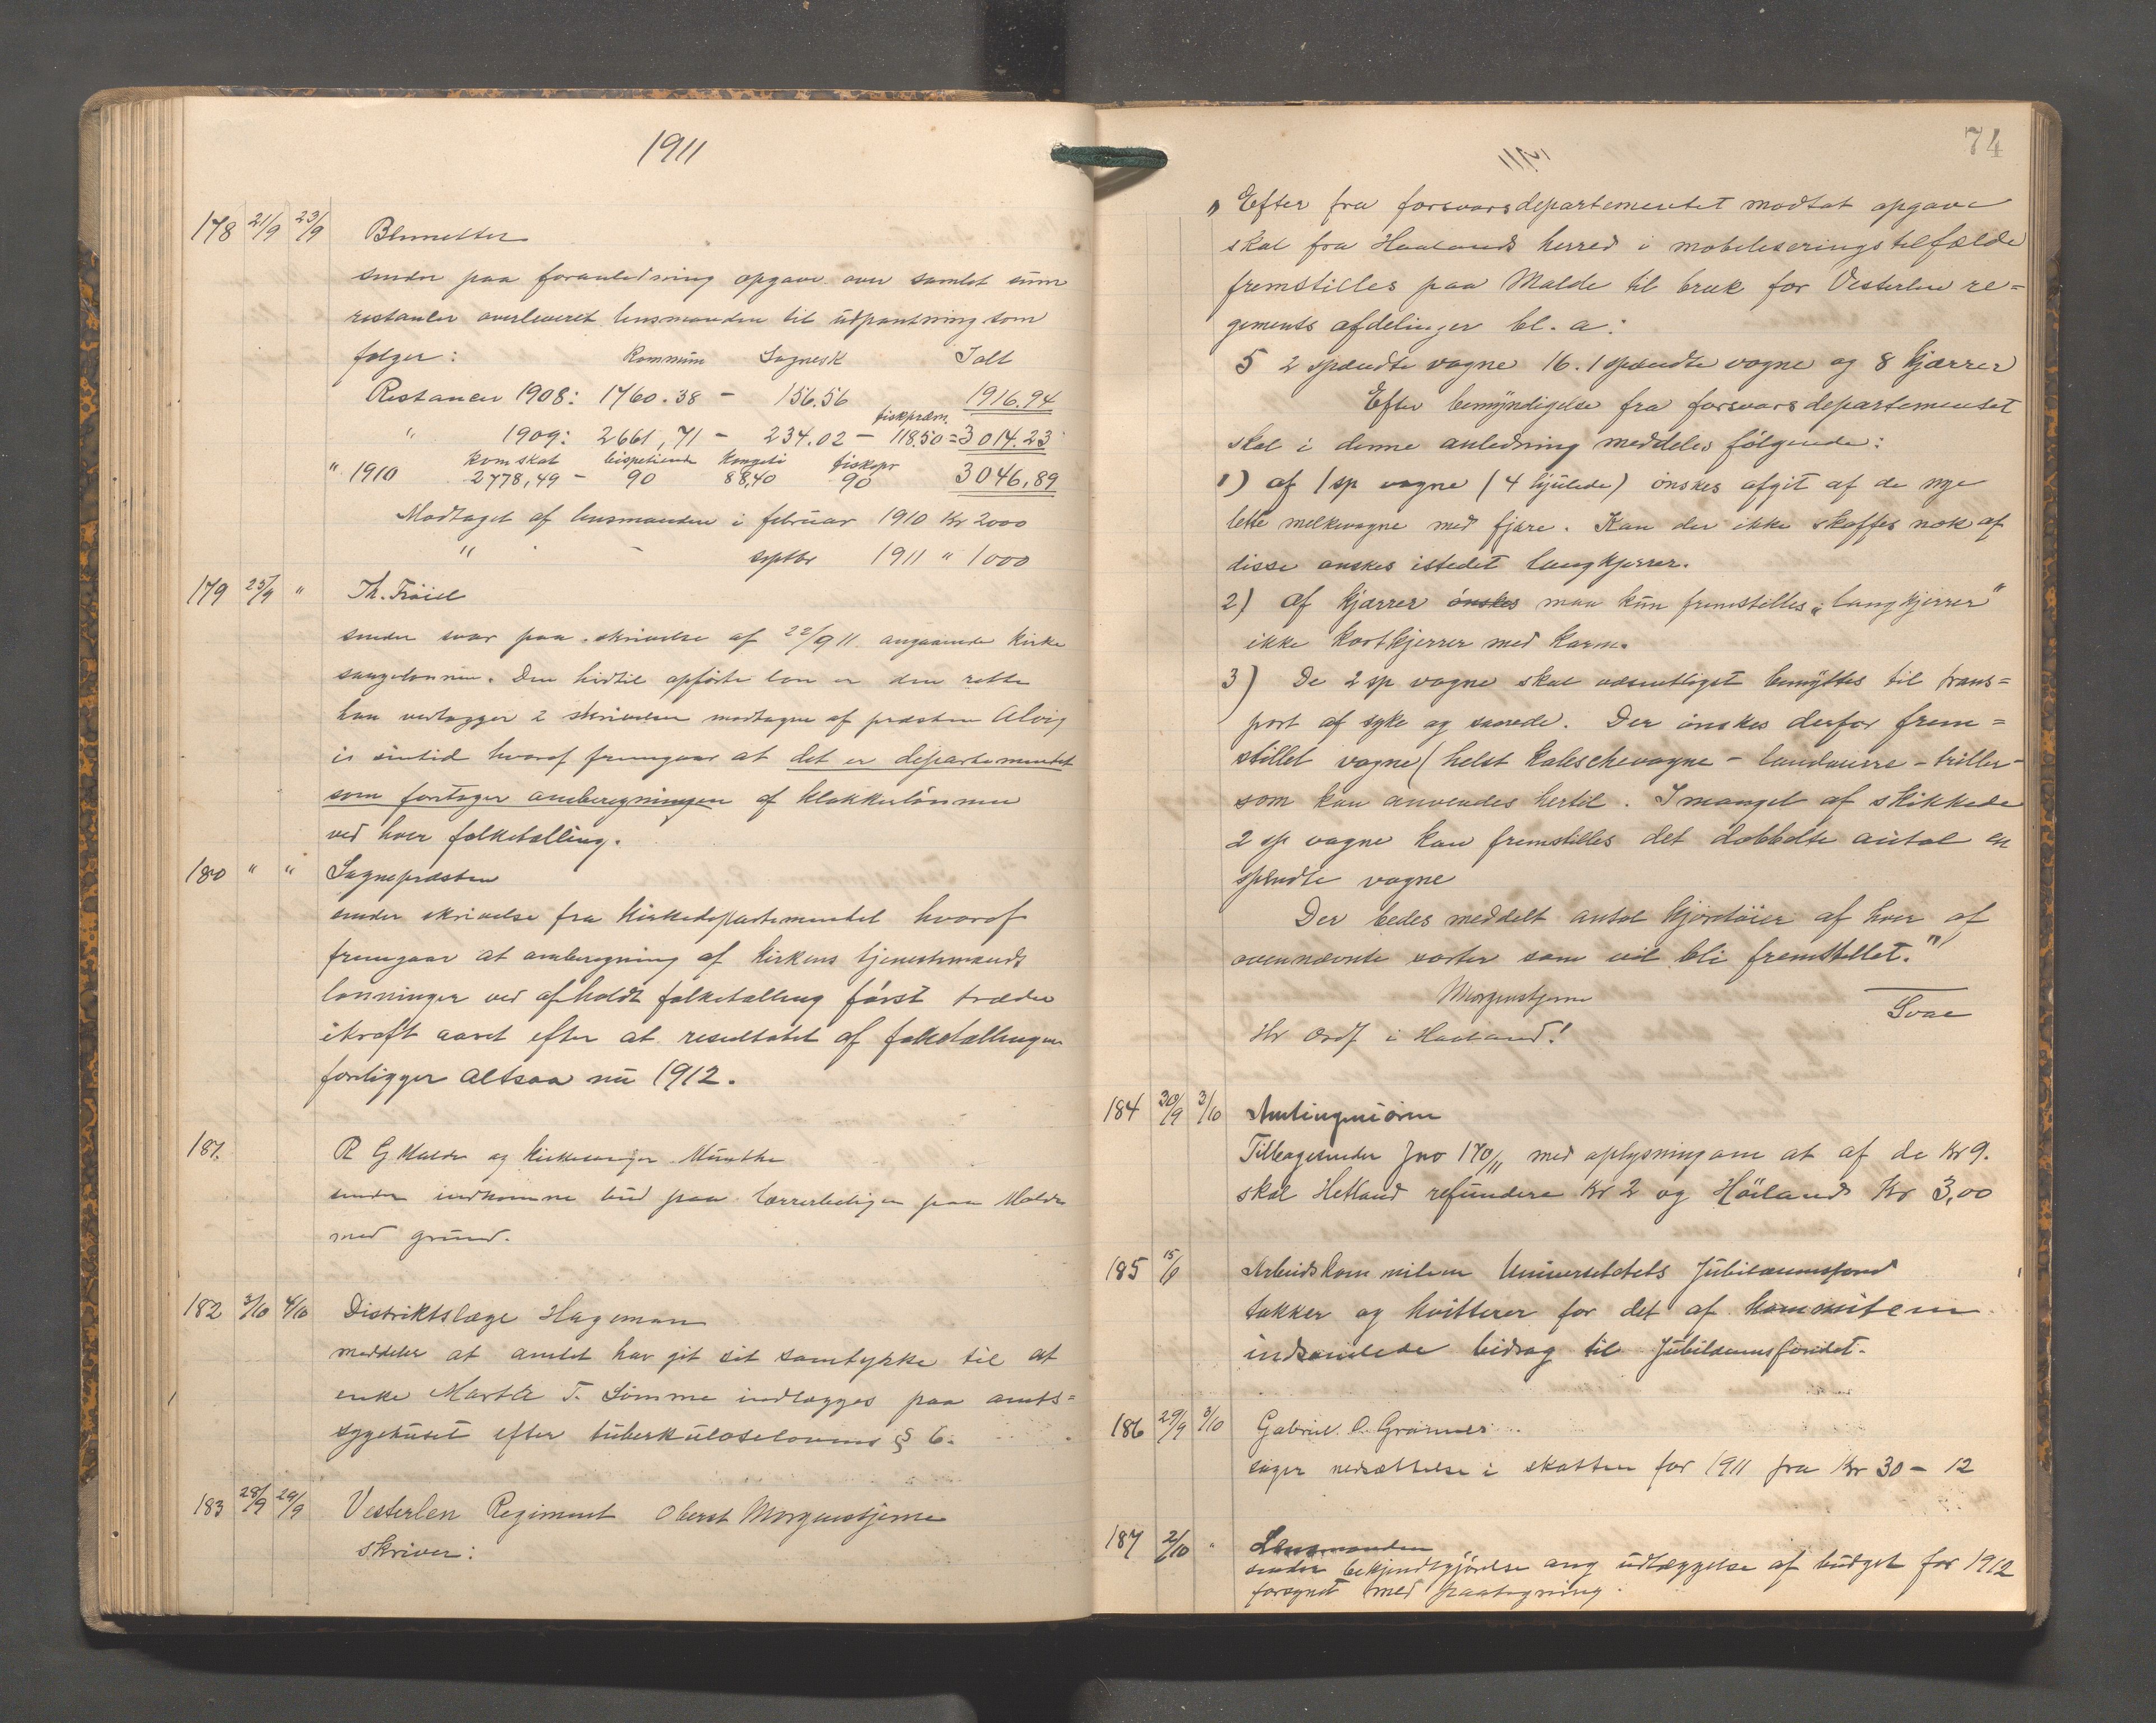 1911
178 21/9 23/9 Blumetter
sender paa foranledning opgave over samlet sum
restancer overleveret lensmanden til udpantning som
følger: Kommun Sognesk Ialt
Restancer 1908: 1760.38 - 156.56 1916.94
fiskprem.
" 1909: 2661,71 - 234.02 - 118.50 = 3014.23
kom skat bispetiende Kongeti fiskepr
" 1910 2778,49 - 90 88,40 90 3046,89
Modtaget af lensmanden i februar 1910 Kr 2000
" - septbr 1911 " 1000
179 25/9 " Th. Fröiel
sender svar paa skrivelse af 22/9 11 angaaende kirke
sangerlønnen. Den hidtil opførte løn er den rette
han vedlægger 2 skrivelser modtagne af præsten Alvig
i sintid hvoraf fremgaar at det er departementet
som foretager omberegningen af klokkerlönnen
ved hver folketælling.
180 " " Sognepræsten
sender skrivelse fra Kirkedepartementet hvoraf
fremgaar at omberegning af Kirkens tjenestemænds
lønninger ved afholdt folketælling först træder
ikraft aaret efter at resultatet af folketællingen
foreligger altsaa nu 1912.
181. R G Malde og Kirkeverge Münthe
sender indkomne bud paa lærerboligen paa Malde
med grund.
182 3/10 4/10 Distriktslæge Hageman
meddeler at amtet har git sit samtykke til at
enke Marthe T. Sömme indlægges paa amts=
sygehuset efter tüberküloselovens § 6.
183 28/9 29/9 Vesterlen Regiment Oberst Morgenstjerne
skriver:
74
1911
" Efter fra forsvarsdepartementet modtat opgave
skal fra Haalands herred i mobiliseringstilfælde
fremstilles paa Malde til bruk for Vesterlen re=
gements afdelinger bl. a:
5 2 spændte vogne 16. 1 spændte vogne og 8 kjærrer
Efter bemyndigelse fra forsvarsdepartementet
skal i denne anledning meddeles følgende:
1) af 1 sp vogne (4 hjulede) ønskes afgit af de nye
lette melkevogne med fjære. Kan der ikke skaffes nok af
disse ønskes istedet langkjerrer.
2) af kjærrer ønskes maa kün fremstilles "langkjerrer"
ikke kortkjerrer med karm.
3) De 2 sp vogne skal væsentligst benyttes til trans=
port af syke og saarede. Der ønskes derfor frem=
stillet vogne (helst kaleschevogne - landauere - triller -
som kan anvendes hertil. I mangel af skikkede
2 sp vogne kan fremstilles det dobbelte antal en
spændte vogne
Der bedes meddelt antal kjøretöier af hver af
ovennævnte sorter som vil bli fremstillet."
Morgenstjerne
Svae
Hr Ordf i Haaland!
184 30/9 3/10 Amtingeniören
Tilbagesender Jno 170/11 med oplysning om at af de Kr 9.
skal Hetland refundere Kr 2 og Höiland Kr 3,00
185 15/9 Arbeidskommiteen Universitetets Jubilæumsfond
takker og kvitterer for det af kommiteen
indsamlede bidrag til Jubilæumsfondet.
186 29/9 3/10 Gabriel O. Grannes
søger nedsættelse i skatten for 1911 fra Kr 30 - 12
187 2/10 " Lensmanden
sender bekjendtgjörelse ang udlæggelse af budget for 1912
forsynet med paategning.